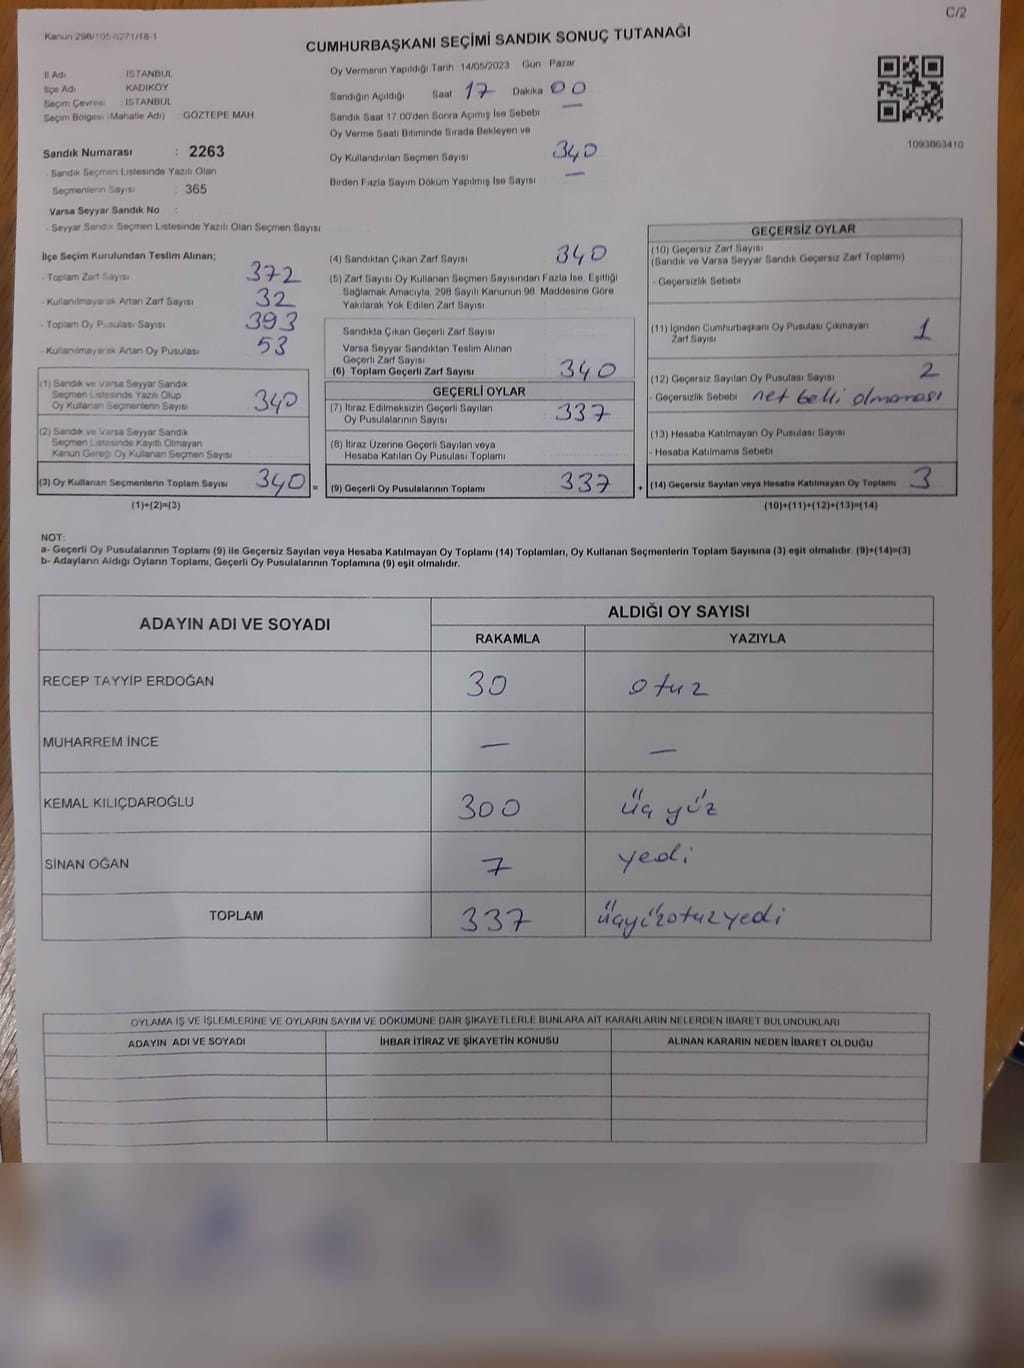 C/2
Kanun 298/105 6271/18-1
CUMHURBAŞKANI SEÇİMİ SANDIK SONUÇ TUTANAĞI
İl Adı İSTANBUL
İlçe Adı KADIKÖY
Seçim Çevresi : İSTANBUL
Seçim Bölgesi (Mahalle Adı) GÖZTEPE MAH
Sandık Numarası : 2263
- Sandık Seçmen Listesinde Yazılı Olan
Seçmenlerin Sayısı : 365
Varsa Seyyar Sandık No :
- Seyyar Sandık Seçmen Listesinde Yazılı Olan Seçmen Sayısı
Oy Vermenin Yapıldığı Tarih 14/05/2023 Gün Pazar
Sandığın Açıldığı Saat 17 Dakika 00
Sandık Saat 17.00'den Sonra Açımış İse Sebebi —
Oy Verme Saati Bitiminde Sırada Bekleyen ve
Oy Kullandırılan Seçmen Sayısı 340
Birden Fazla Sayım Döküm Yapılmış İse Sayısı —
1093863410
İlçe Seçim Kurulundan Teslim Alınan;
- Toplam Zarf Sayısı 372
- Kullanılmayarak Artan Zarf Sayısı 32
- Toplam Oy Pusulası Sayısı 393
- Kullanılmayarak Artan Oy Pusulası 53
(1) Sandık ve Varsa Seyyar Sandık
Seçmen Listesinde Yazılı Olup
Oy Kullanan Seçmenlerin Sayısı 340
(2) Sandık ve Varsa Seyyar Sandık
Seçmen Listesinde Kayıtlı Olmayan
Kanun Gereği Oy Kullanan Seçmen Sayısı
(3) Oy Kullanan Seçmenlerin Toplam Sayısı 340 =
(1)+(2)=(3)
(4) Sandıktan Çıkan Zarf Sayısı 340
(5) Zarf Sayısı Oy Kullanan Seçmen Sayısından Fazla İse, Eşitliği
Sağlamak Amacıyla, 298 Sayılı Kanunun 98. Maddesine Göre
Yakılarak Yok Edilen Zarf Sayısı
Sandıkta Çıkan Geçerli Zarf Sayısı
Varsa Seyyar Sandıktan Teslim Alınan
Geçerli Zarf Sayısı
(6) Toplam Geçerli Zarf Sayısı 340
GEÇERLİ OYLAR
(7) İtiraz Edilmeksizin Geçerli Sayılan
Oy Pusulalarının Sayısı 337
(8) İtiraz Üzerine Geçerli Sayılan veya
Hesaba Katılan Oy Pusulası Toplamı
(9) Geçerli Oy Pusulalarının Toplamı 337 +
GEÇERSİZ OYLAR
(10) Geçersiz Zarf Sayısı
(Sandık ve Varsa Seyyar Sandık Geçersiz Zarf Toplamı)
- Geçersizlik Sebebi
(11) İçinden Cumhurbaşkanı Oy Pusulası Çıkmayan
Zarf Sayısı 1
(12) Geçersiz Sayılan Oy Pusulası Sayısı 2
- Geçersizlik Sebebi net belli olmaması
(13) Hesaba Katılmayan Oy Pusulası Sayısı
- Hesaba Katılmama Sebebi
(14) Geçersiz Sayılan veya Hesaba Katılmayan Oy Toplamı 3
(10)+(11)+(12)+(13)=(14)
NOT:
a- Geçerli Oy Pusulalarının Toplamı (9) ile Geçersiz Sayılan veya Hesaba Katılmayan Oy Toplamı (14) Toplamları, Oy Kullanan Seçmenlerin Toplam Sayısına (3) eşit olmalıdır. (9)+(14)=(3)
b- Adayların Aldığı Oyların Toplamı, Geçerli Oy Pusulalarının Toplamına (9) eşit olmalıdır.
ADAYIN ADI VE SOYADI ALDIĞI OY SAYISI
RAKAMLA YAZIYLA
RECEP TAYYİP ERDOĞAN 30 otuz
MUHARREM İNCE — —
KEMAL KILIÇDAROĞLU 300 üç yüz
SİNAN OĞAN 7 yedi
TOPLAM 337 üçyüzotuzyedi
OYLAMA İŞ VE İŞLEMLERİNE VE OYLARIN SAYIM VE DÖKÜMÜNE DAİR ŞİKAYETLERLE BUNLARA AİT KARARLARIN NELERDEN İBARET BULUNDUKLARI
ADAYIN ADI VE SOYADI İHBAR İTİRAZ VE ŞİKAYETİN KONUSU ALINAN KARARIN NEDEN İBARET OLDUĞU